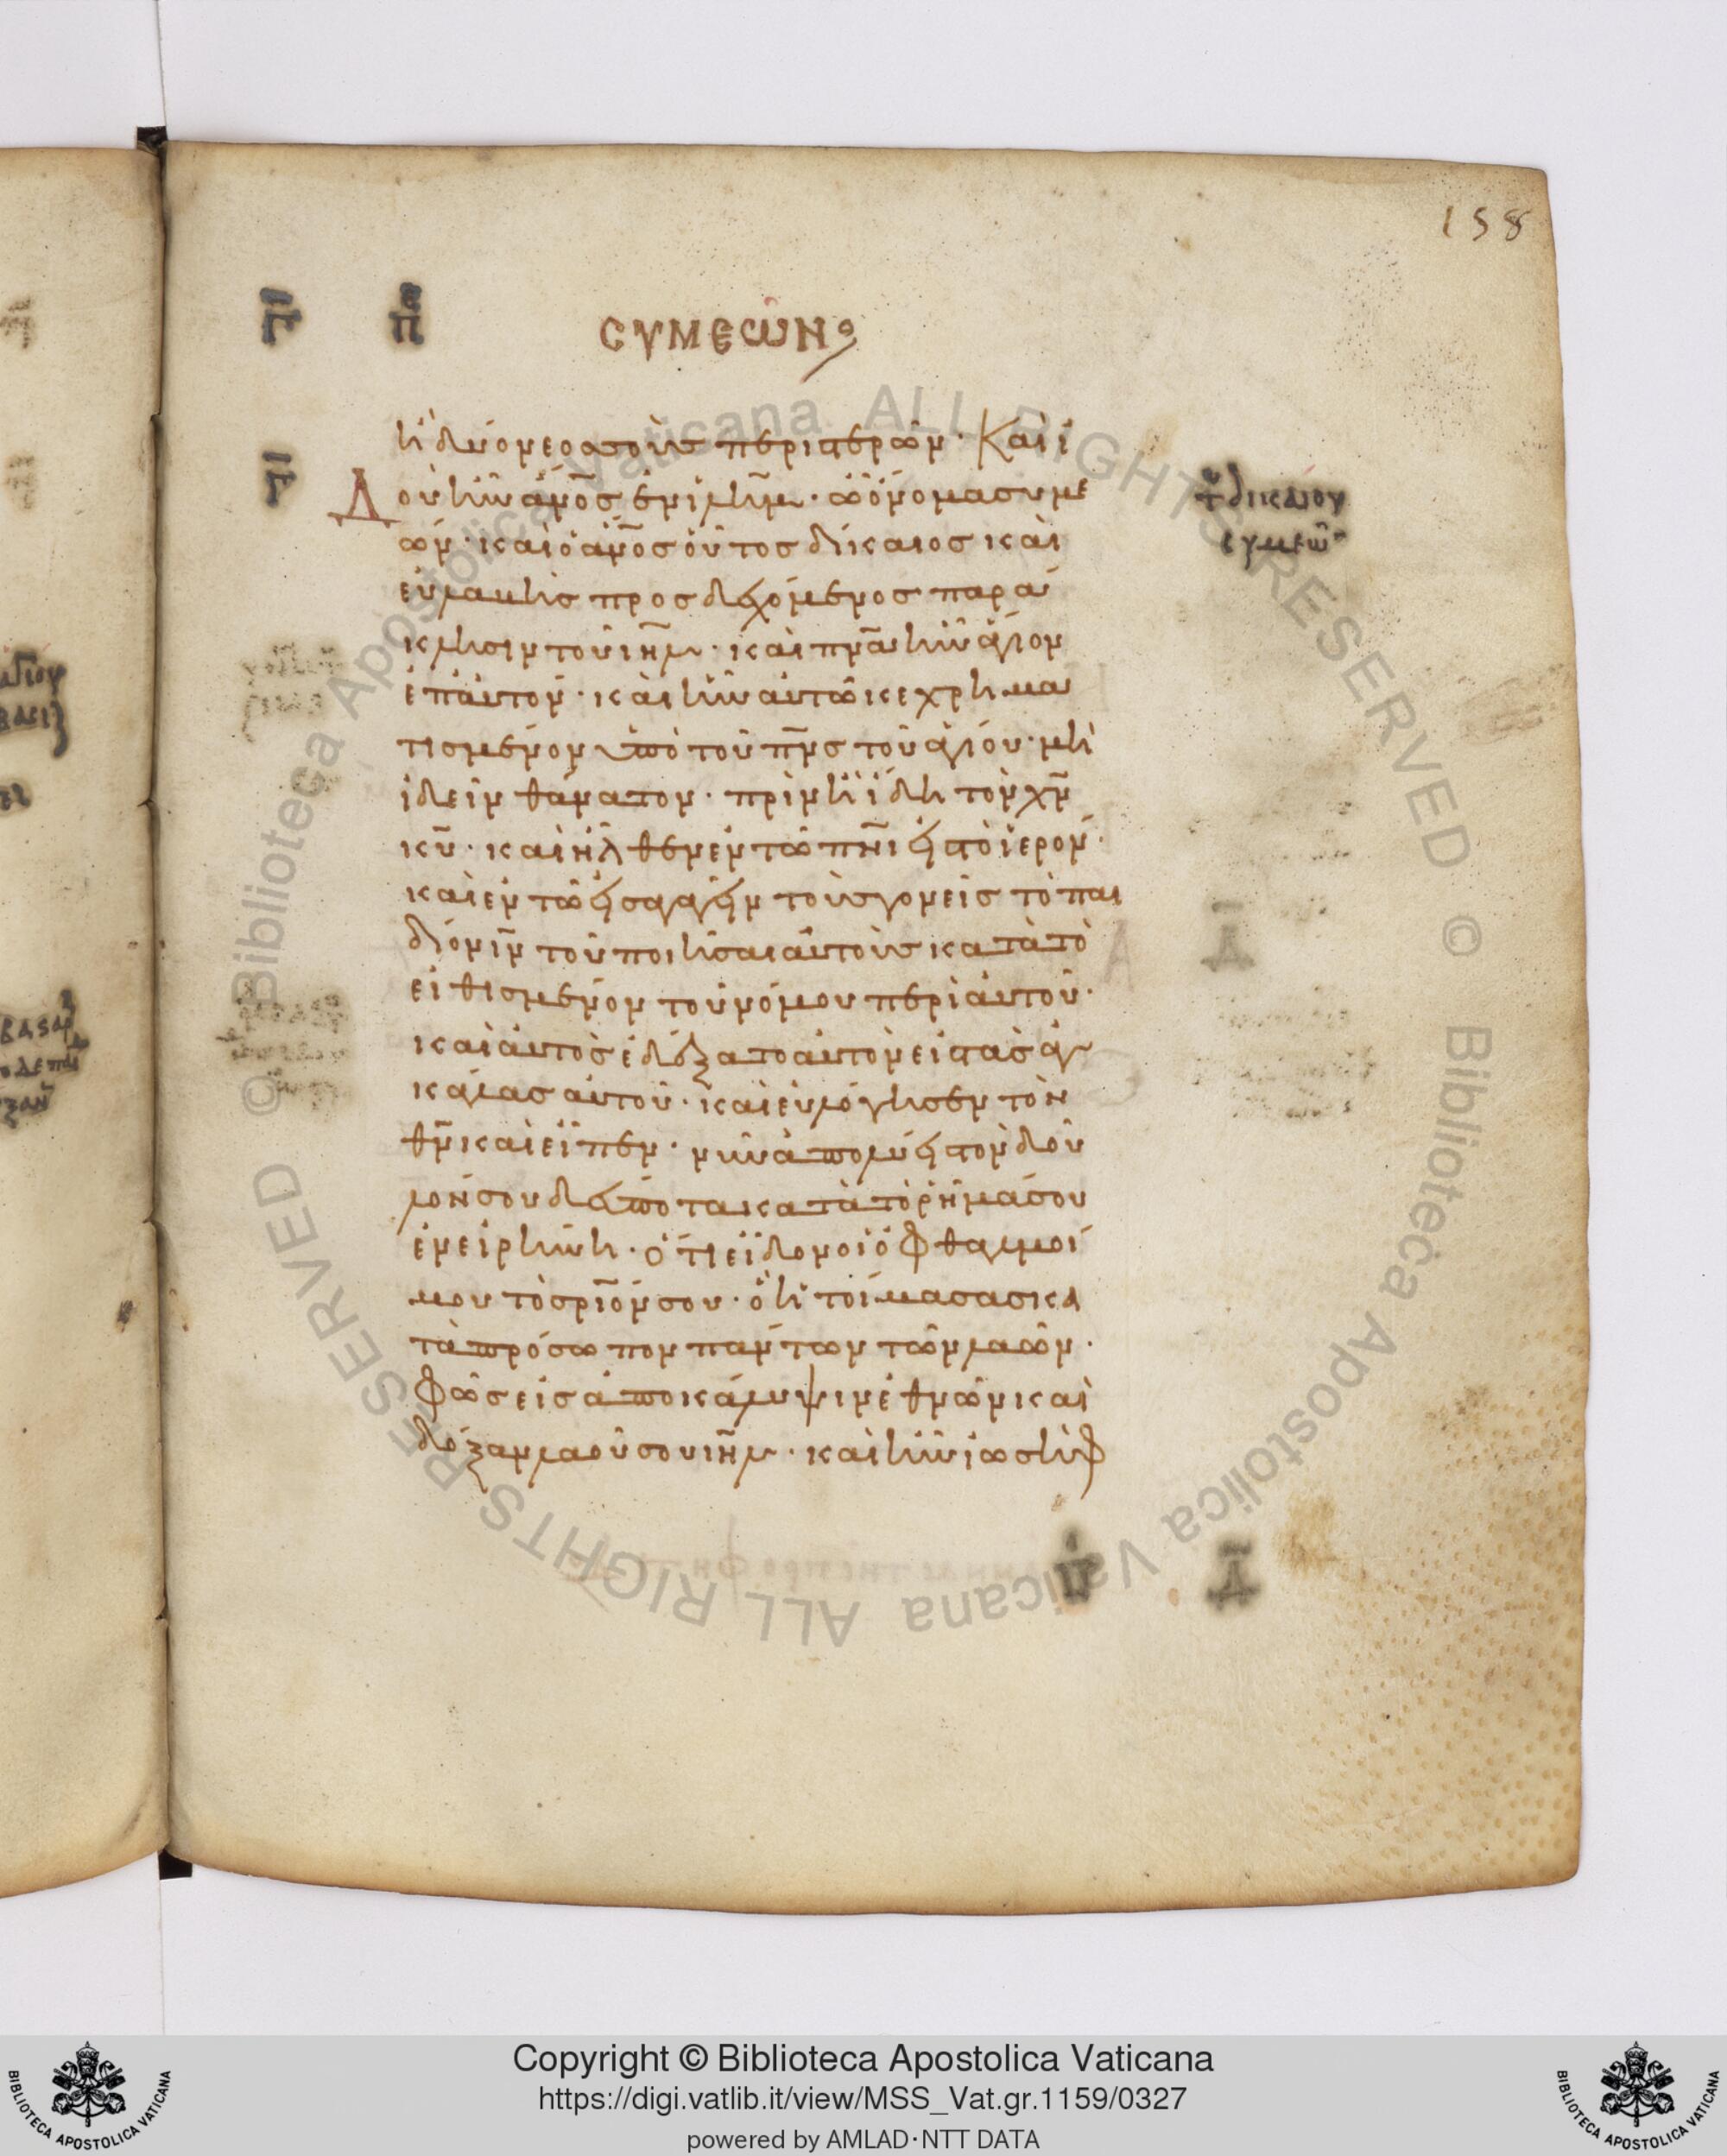 158
συμεων
ἢ δύο νεοσσοὺς περιστερῶν· Καὶ ἰ
Δοὺ ἦν ἄνο̅ς ἐν ιλῆμ· ὧ ὄνομα συμε
ών· καὶ ὁ ἄνο̅ς οὗτος δίκαιος καὶ
εὐλαβὴς προσδεχόμενος παρά
κλησιν τοῦ ιη̅λ· καὶ πνα̅ ἦν ἅγιον
ἐπ' αὐτόν· καὶ ἦν αὐτῶ κεχρημα
τισμένον ὑπὸ τοῦ πνς̅ τοῦ ἁγίου· μὴ
ἰδεῖν θάνατον· πρὶν ἢ ἴδη τὸν χν̅
κυ̅· καὶ ἦλθεν ἐν τῶ πνι̅ εἰς τὸ ἱερόν·
καὶ ἐν τῶ εἰσαγαγεῖν τοὺς γονεῖς τὸ παι
δίον ιν̅ τοῦ ποιῆσαι αὐτοὺς κατὰ τὸ
εἰθισμένον τοῦ νόμου περὶ αὐτοῦ·
καὶ αὐτὸς ἐδέξατο αὐτὸν εἰς τὰς ἀγ
κάλας αὐτοῦ· καὶ εὐλόγησεν τὸν
θν̅ καὶ εἶπεν· νῦν ἀπολύεις τὸν δοῦ
λον σου δέσποτα κατὰ τὸ ῥῆμά σου
ἐν εἰρήνη· ὅτι εἶδον οἱ ὀφθαλμοί
μου τὸ σριο̅ν σου· ὃ ἡτοίμασας κα
τὰ πρόσωπον πάντων τῶν λαῶν·
φῶς εἰς ἀποκάλυψιν ἐθνῶν καὶ
δόξαν λαοῦ σου ιη̅λ· καὶ ἦν ἰωσὴφ
τ δικαιου
συμεω
Copyright © Biblioteca Apostolica Vaticana
https://digi.vatlib.it/view/MSS_Vat.gr.1159/0327
powered by AMLAD·NTT DATA
BIBLIOTECA APOSTOLICA VATICANA
BIBLIOTECA APOSTOLICA VATICANA
© Biblioteca Apostolica Vaticana ALL RIGHTS RESERVED © Biblioteca Apostolica Vaticana ALL RIGHTS RESERVED